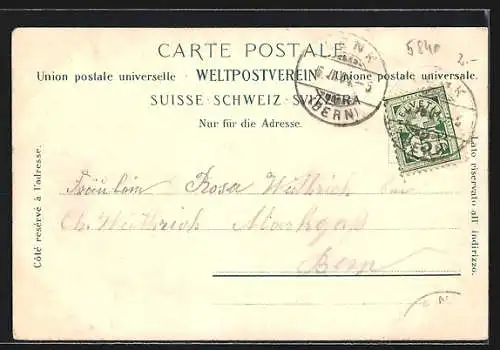 CARTE POSTALE
5840
2.-
Union postale universelle · WELTPOSTVEREIN · Unione postale universale.
SUISSE · SCHWEIZ ·
Nur für die Adresse.
LENK
(BERN)
HELVETIA
5
Côté reservé à l'adresse.
Lato riservato all' indirizzo.
Fräulein Rosa Wüthrich bei
Ch. Wüthrich Marktgaß
Bern